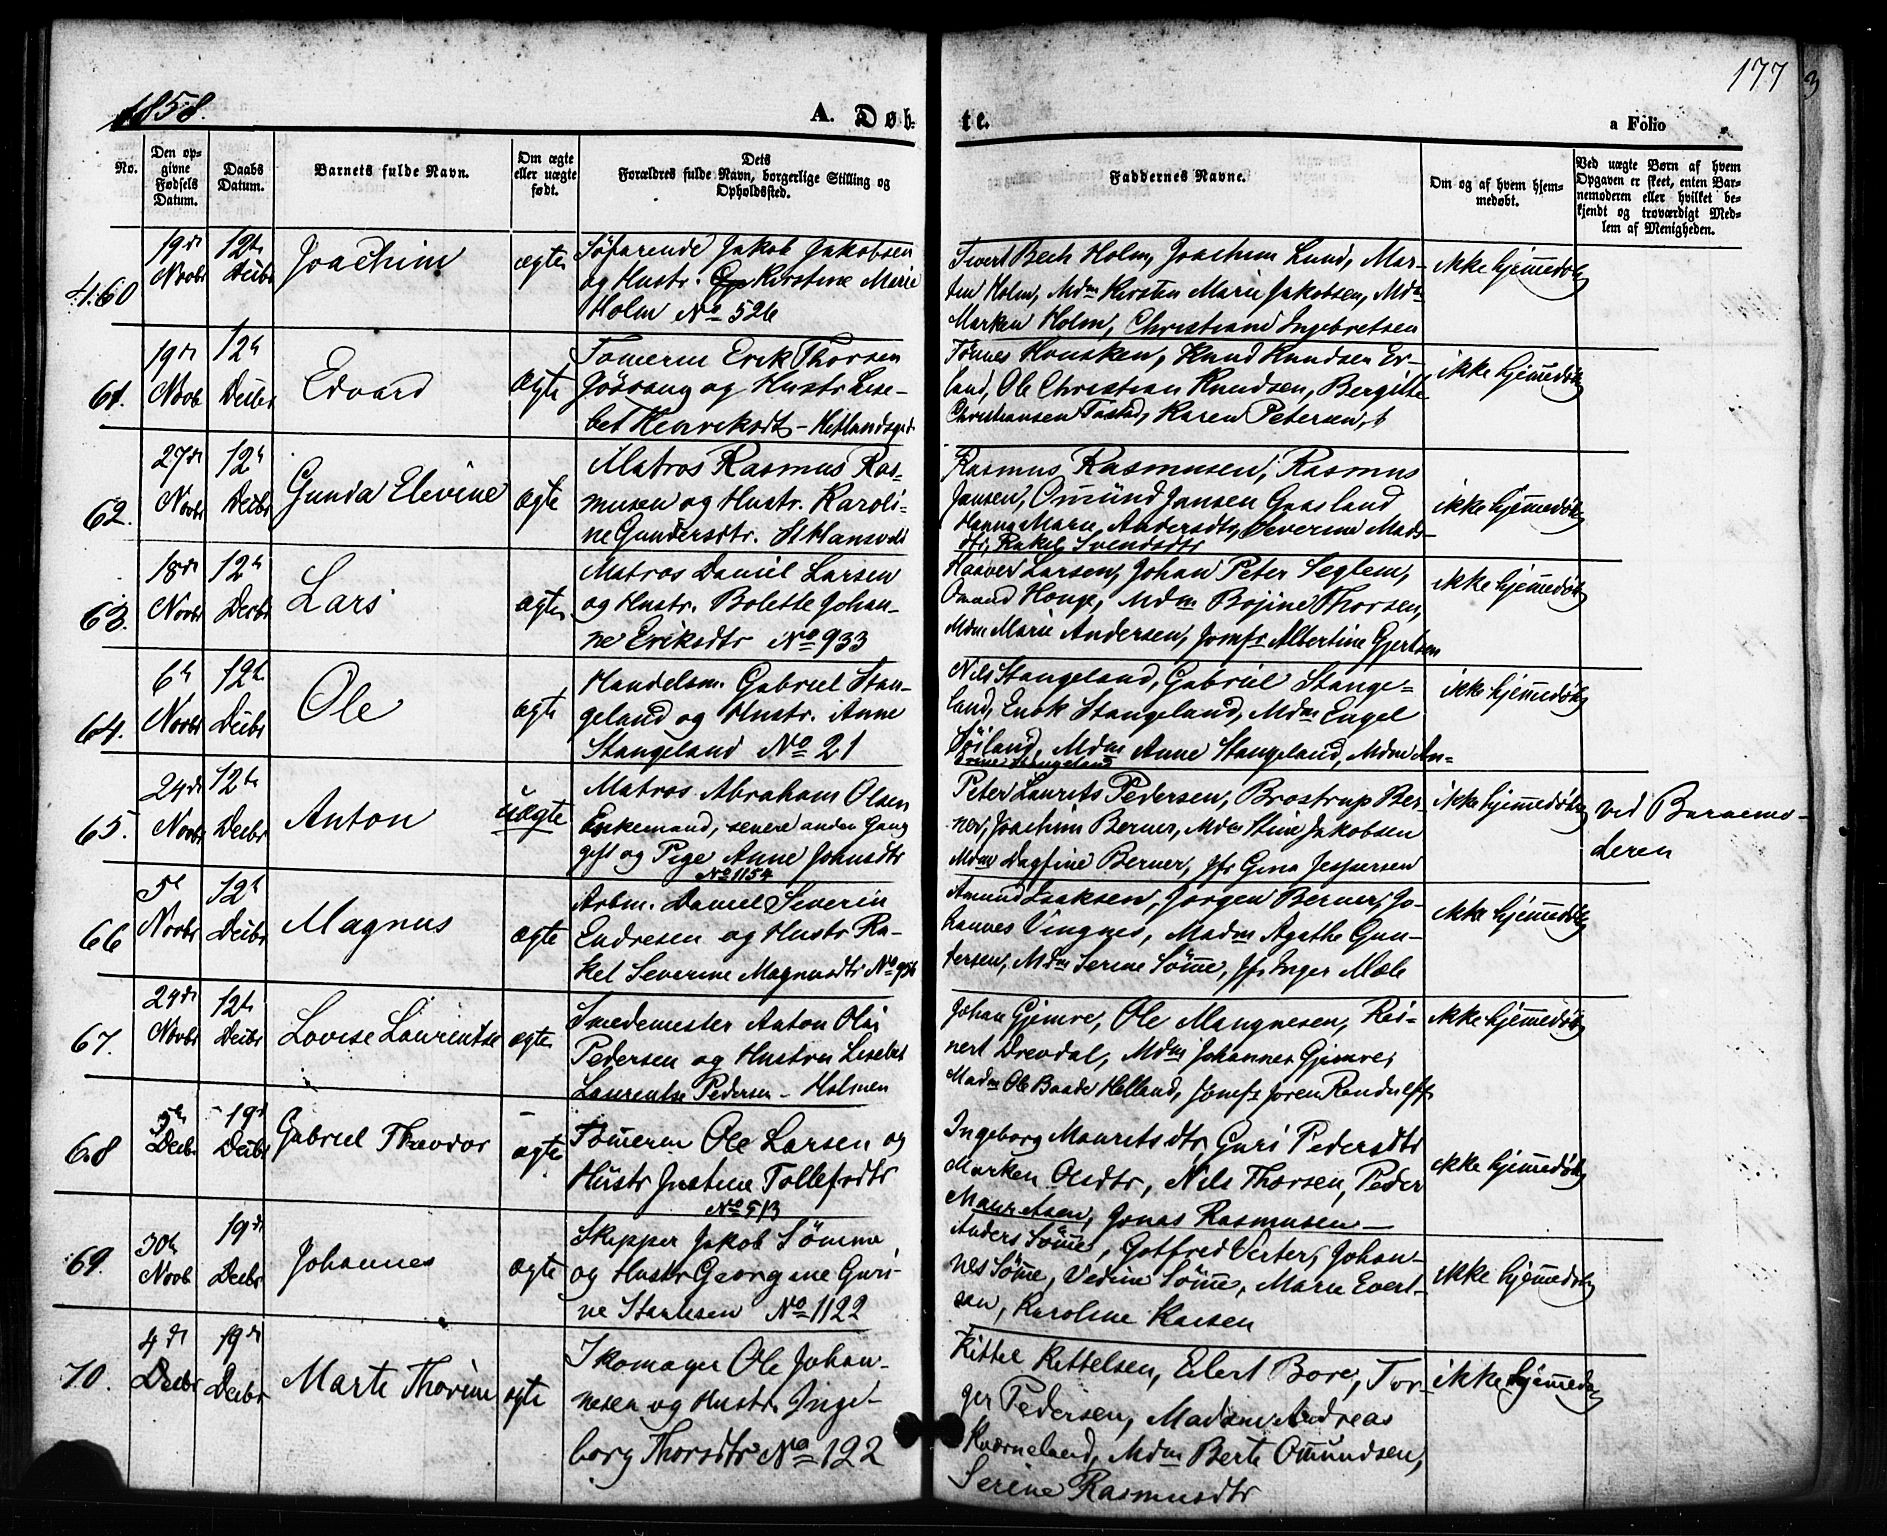 177
3
1858.
A. Døb-
te.
a Folio
No.
Den op-
givne
Fødsels
Datum.
Daabs
Datum.
Barnets fulde Navn.
Om ægte
eller uægte
født.
Dets
Forældres fulde Navn, borgerlige Stilling og
Opholdssted.
Faddernes Navne.
Om og af hvem hjem-
medøbt.
Ved uægte Børn af hvem
Opgaven er skeet, enten Bar-
nemoderen eller hvilket be-
kjendt og troværdigt Med-
lem af Menigheden.
460
19de Novbr
12te Decbr
Joachim
ægte
Søfarende Jakob Jakobsen
og Hustr. Kirstine Marie
Holm No 526
Sivert Bech Holm, Joachim Lund, Mar-
ten Holm, Mdm Kirsten Marie Jakobsen, Mdm
Marken Holm, Christiane Ingebretsen
ikke hjemmedøbt
61.
19de Novb
12te Decbr
Edvard
ægte
Tømerm Erik Thorsen
Jøssang og Hustr Lise-
bet Henriksdtr - Hetlandsgd
Tønnes Housken, Knud Knudsen Er-
land, Ole Christian Knudsen, Bergitte
Christiansen Tastad, Karen Petersen,
ikke hjemmedøbt
62.
27de Novbr
12te Decbr
Gunda Elevine
ægte
Matros Rasmus Ras-
musen og Hustr. Karoli-
ne Gundersdtr. St Hansvold
Rasmus Rasmusen, Rasmus
Jansen, Omund Jansen Gaasland
Hanna Marie Andersdtr, Severine Mads-
dtr, Rakel Svendsdtr
ikke hjemmedøbt
63.
18de Novbr
12te Decbr
Lars
ægte
Matros Daniel Larsen
og Hustr. Bolette Johan-
ne Eriksdtr No 933
Haaver Larsen, Johan Peter Seglem,
Omund Houge, Mdm Bojine Thorsen,
Mdm Marie Andersen, Jomfr Albertine Gjertsen
ikke hjemmedøbt
64.
6te Novbr
12te Decbr
Ole
ægte
Handelsm. Gabriel Stan-
geland og Hustr. Anne
Stangeland No 21
Nils Stangeland, Gabriel Stange-
land, Enok Stangeland, Mdm Engel
Søiland, Mdm Anne Stangeland, Mdm An-
Stangeland
ikke hjemmedøbt
65.
24de Novbr
12te Decbr
Anton
uægte
Matros Abraham Olsen
Enkemand, senere anden Gang
gift og Pige Anne Johnsdtr
No 1154
Peter Laurits Pedersen, Brostrup Ber-
ner, Joachim Berner, Mdm Stine Jakobsen
Mdm Dagfine Berner, Jfr Gina Jespersen
ikke hjemmedøbt
ved Barnemo-
deren
66
5te Novbr
12te Decbr
Magnus
ægte
Arbm. Daniel Severin
Endresen og Hustr Ra-
kel Severine Magnusdtr No 956
Amund Isaksen, Jørgen Berner, Jo-
hannes Vingnes, Madm Agathe Gun-
dersen, Mdm Serine Sømme, Jfr Inger Mæle
ikke hjemmedøbt
67.
24de Novbr
12te Decbr
Lovise Laurentse
ægte
Smedemester Anton Olai
Pedersen og Hustru Lisebet
Laurentse Pedersen - Holmen
Johan Gjemre, Ole Mangnesen, Rei-
nert Drevdal, Mdm Johannes Gjemre,
Madm Ole Baade Helland, Jomfr Joren Randulff
ikke hjemmedøbt
68
5te Decbr
19de Decbr
Gabriel Theodor
ægte
Tømerm Ole Larsen og
Hustr Justine Tollefsdtr
No 513
Ingeborg Mauritsdtr, Guri Pedersdtr
Marken Olsdtr, Nils Thorsen, Peder
Mauritsen, Jonas Rasmusen
ikke hjemmedøbt
69.
30te Novb
19de Decbr
Johannes
ægte
Skipper Jakob Sømme
og Hustr Georgine Guri-
ne Staalesen No 1122
Anders Sømme, Gotfred Verter, Johan-
nes Sømme, Verine Sømme, Marie Evert-
sen, Karoline Karsen
ikke hjemmedøbt
70.
4de Decbr
19de Decbr
Marte Thorine
ægte
Skomager Ole Johan-
nesen og Hustr. Inge-
borg Thorsdtr No 122
Kittel Kittelsen, Eilert Bore, Tor-
ger Pedersen, Madam Andreas
Kværneland, Mdm Berte Omundsen,
Serine Rasmusdtr
ikke hjemmedøbt